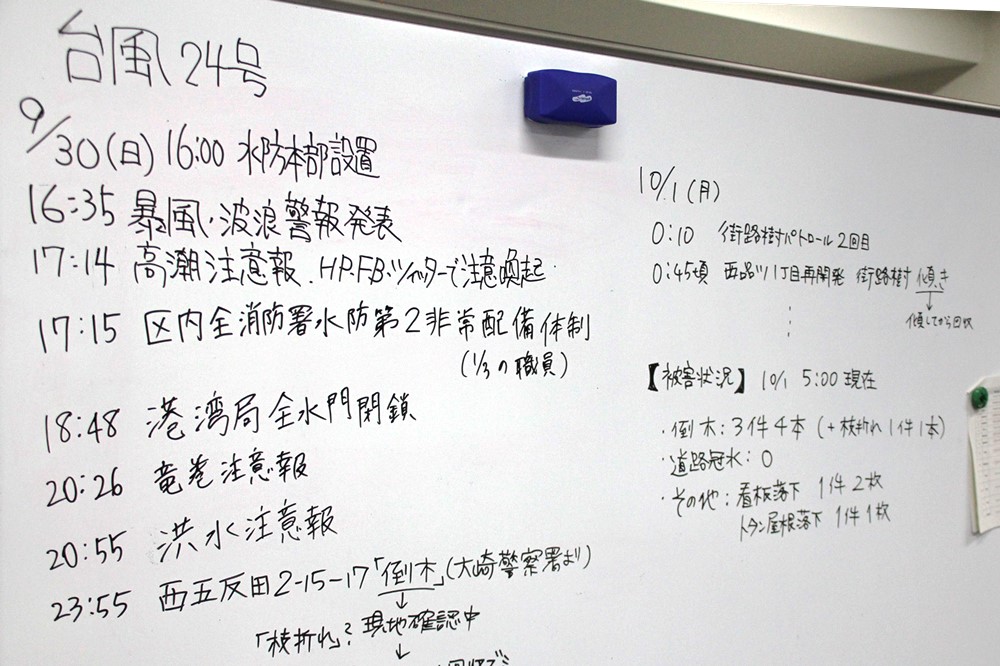 台風24号
9/30(日) 16:00 水防本部設置
16:35 暴風・波浪警報発表
17:14 高潮注意報. HP.FB.ツイッターで注意喚起
17:15 区内全消防署水防第2非常配備体制
(1/3の職員)
18:48 港湾局全水門閉鎖
20:26 竜巻注意報
20:55 洪水注意報
23:55 西五反田2-15-17「倒木」(大崎警察署より)
↓
「枝折れ」? 現地確認中
↓
10/1(月)
0:10 街路樹パトロール2回目
0:45頃 西品川1丁目再開発 街路樹 傾き
↓
傾してから回収
【被害状況】 10/1 5:00現在
・倒木:3件4本 (+枝折れ1件1本)
・道路冠水:0
・その他:看板落下 1件2枚
トタン屋根落下 1件1枚